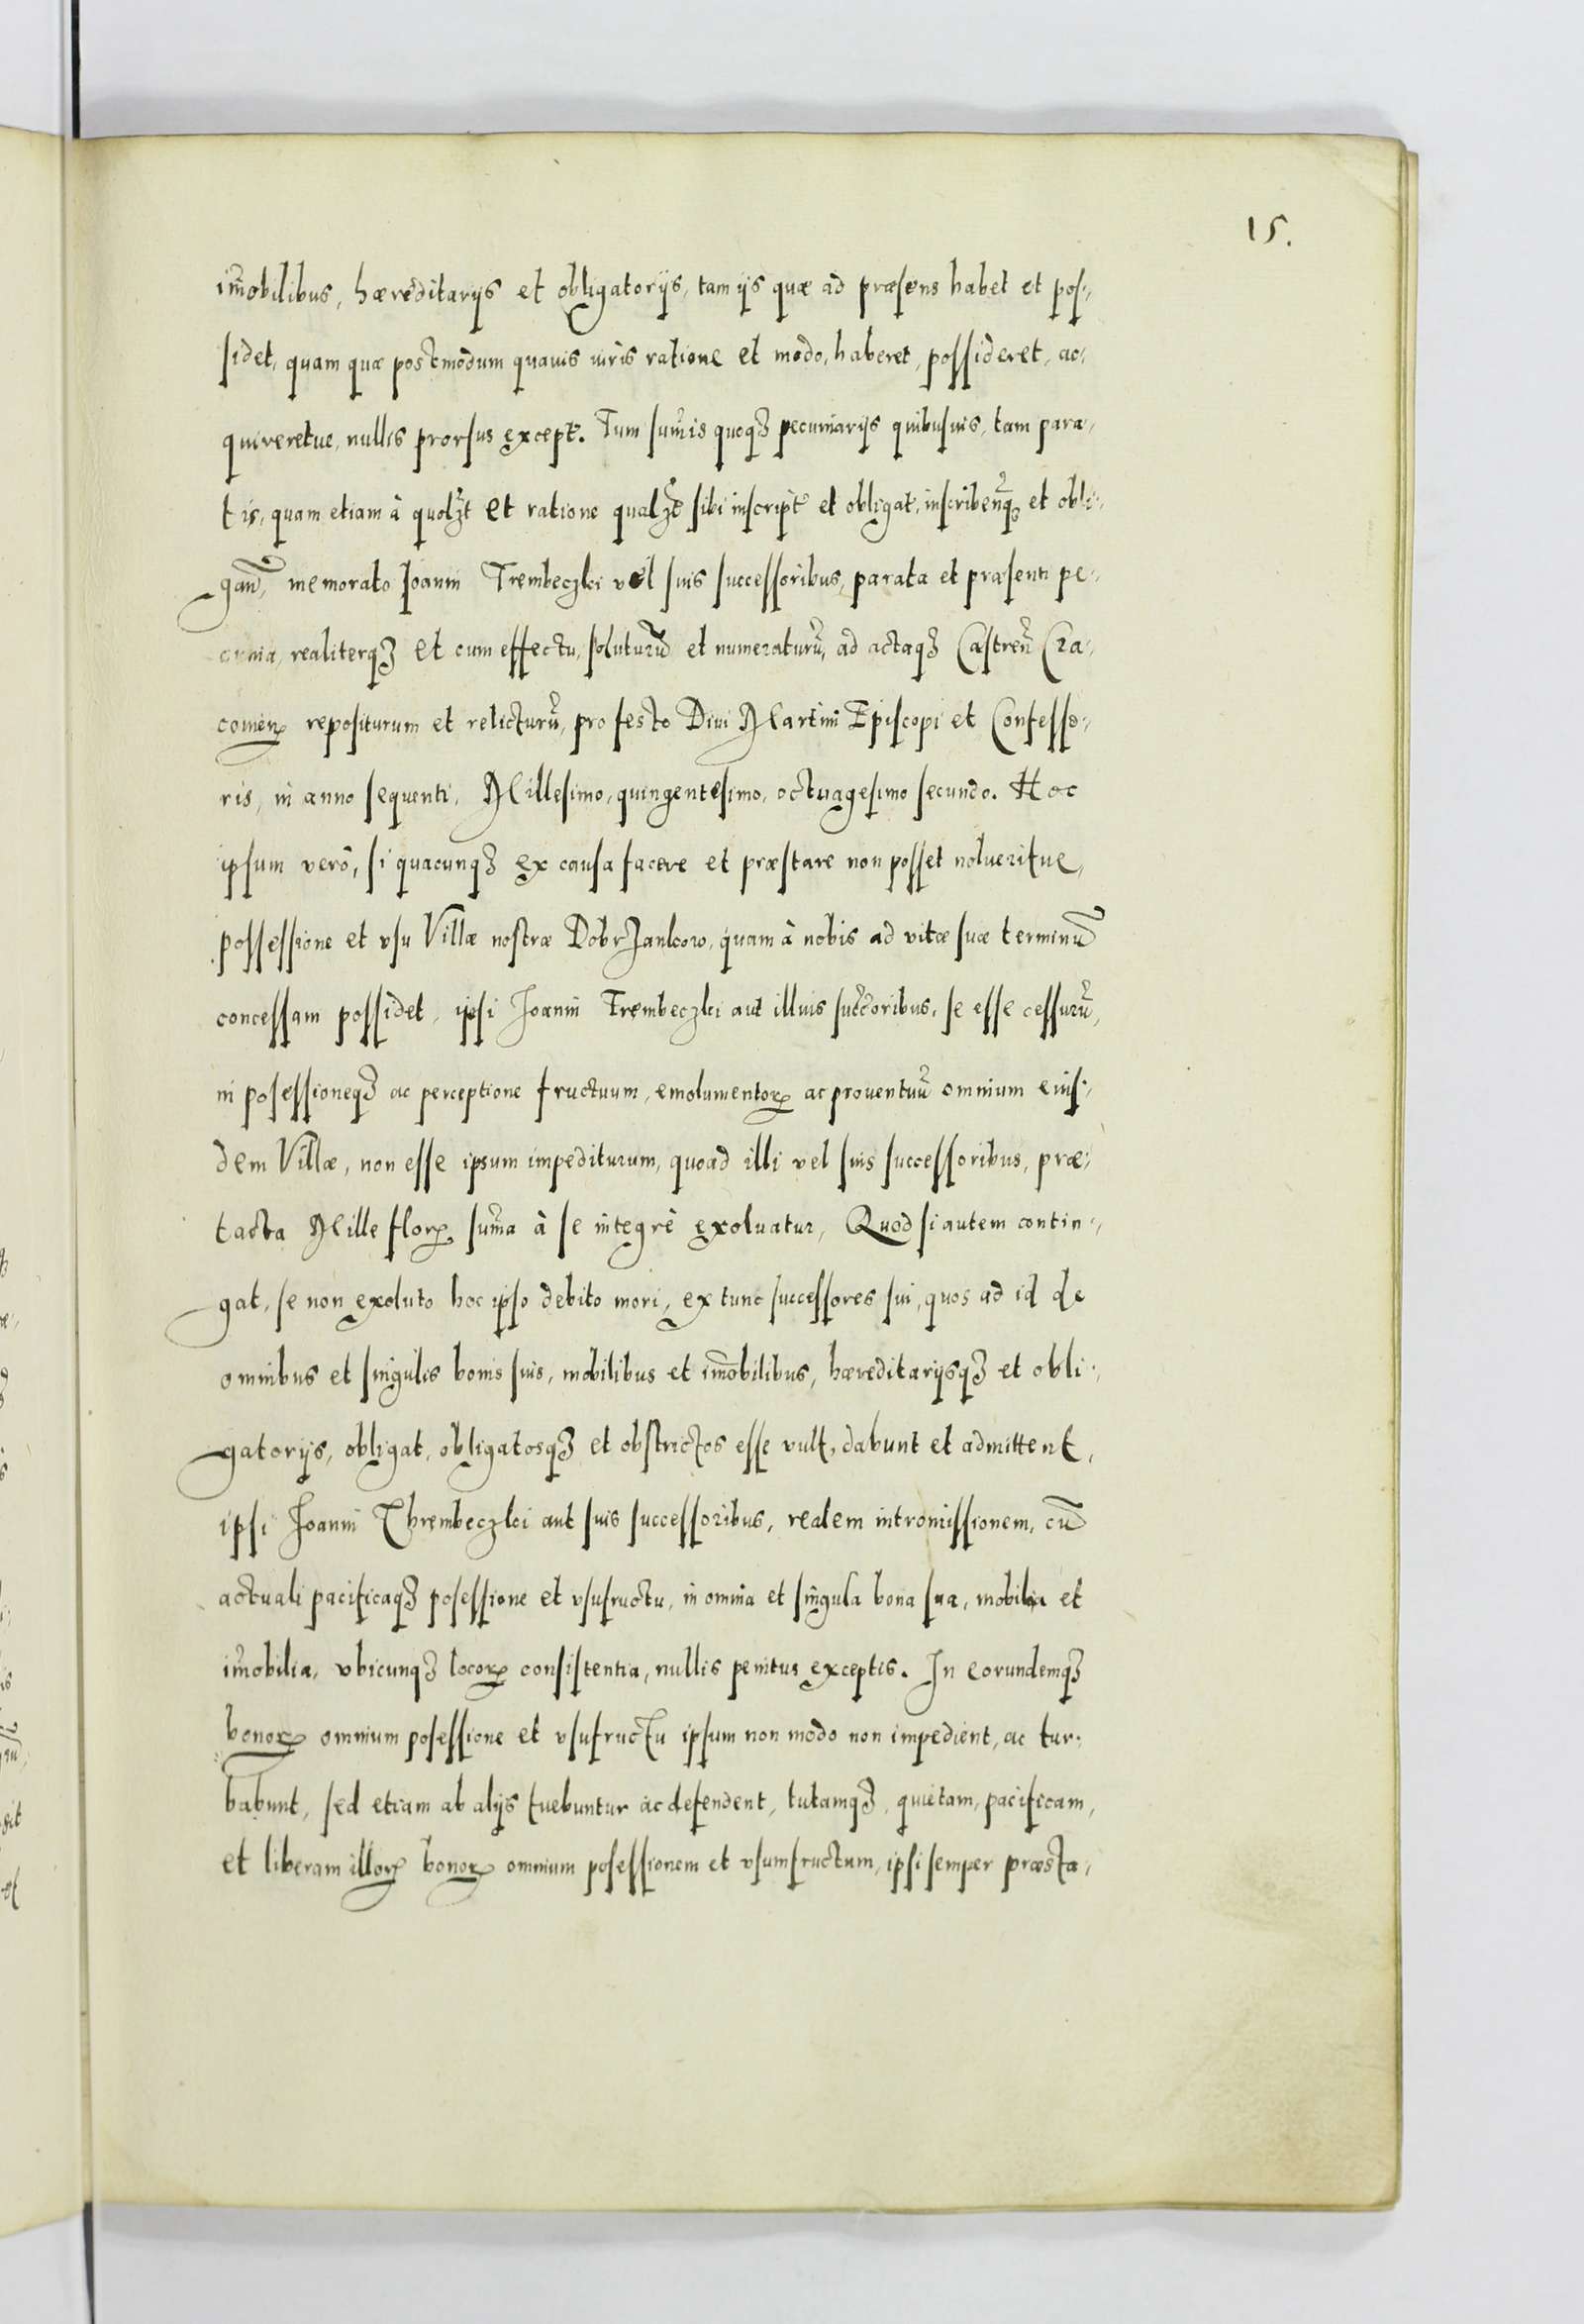 15.
im̃obilibus, hæreditarijs et obligatorijs, tam ijs quæ ad præsens habet et pos-
sidet, quam quæ postmodum quauis iuris ratione et modo, haberet, possideret, ac-
quireretue, nullis prorsus except. Tum sum̃is quoqꝫ pecuniarijs quibusuis, tam para-
tis, quam etiam à quolꝫt et ratione qualꝫt sibi inscript et obligat, inscribenꝗ et obli-
gañ, memorato Joanni Trembeczki vel suis successoribus, parata et præsenti pe-
cunia, realiterqꝫ et cum effectu, soluturũ et numeraturũ, ad actaqꝫ Castreñ Cra-
couieñ repositurum et relicturũ, pro festo Diui Martini Episcopi et Confesso-
ris, in anno sequenti, Millesimo, quingentesimo, octuagesimo secundo. Hoc
ipsum verò, si quacunqꝫ ex causa facere et præstare non posset nolueritue,
possessione et vsu Villæ nostræ Dobrzankow, quam à nobis ad vitæ suæ terminũ
concessam possidet, ipsi Joanni Trembeczki aut illius suc̃coribus, se esse cessurũ,
in posessioneqꝫ ac perceptione fructuum, emolumentoꝝ ac prouentuũ omnium eius-
dem Villæ, non esse ipsum impediturum, quoad illi vel suis successoribus, præ-
tacta Mille floꝝ sum̃a à se integrè exoluatur, Quod si autem contin-
gat, se non exoluto hoc ipso debito mori, ex tunc successores sui, quos ad id de
omnibus et singulis bonis suis, mobilibus et im̃obilibus, hæreditarijsqꝫ et obli-
gatorijs, obligat, obligatosqꝫ et obstrictos esse vult, dabunt et admittent,
ipsi Joanni Thrembeczki aut suis successoribus, realem intromissionem, cũ
actuali pacificaqꝫ posessione et vsufructu, in omnia et singula bona sua, mobilia et
im̃obilia, vbicunqꝫ locoꝝ consistentia, nullis penitus exceptis. In eorundemqꝫ
bonoꝝ omnium posessione et vsufructu ipsum non modo non impedient, ac tur-
babunt, sed etiam ab alijs tuebuntur ac defendent, tutamqꝫ, quietam, pacificam,
et liberam illoꝝ bonoꝝ omnium posessionem et vsumfructum, ipsi semper præsta-